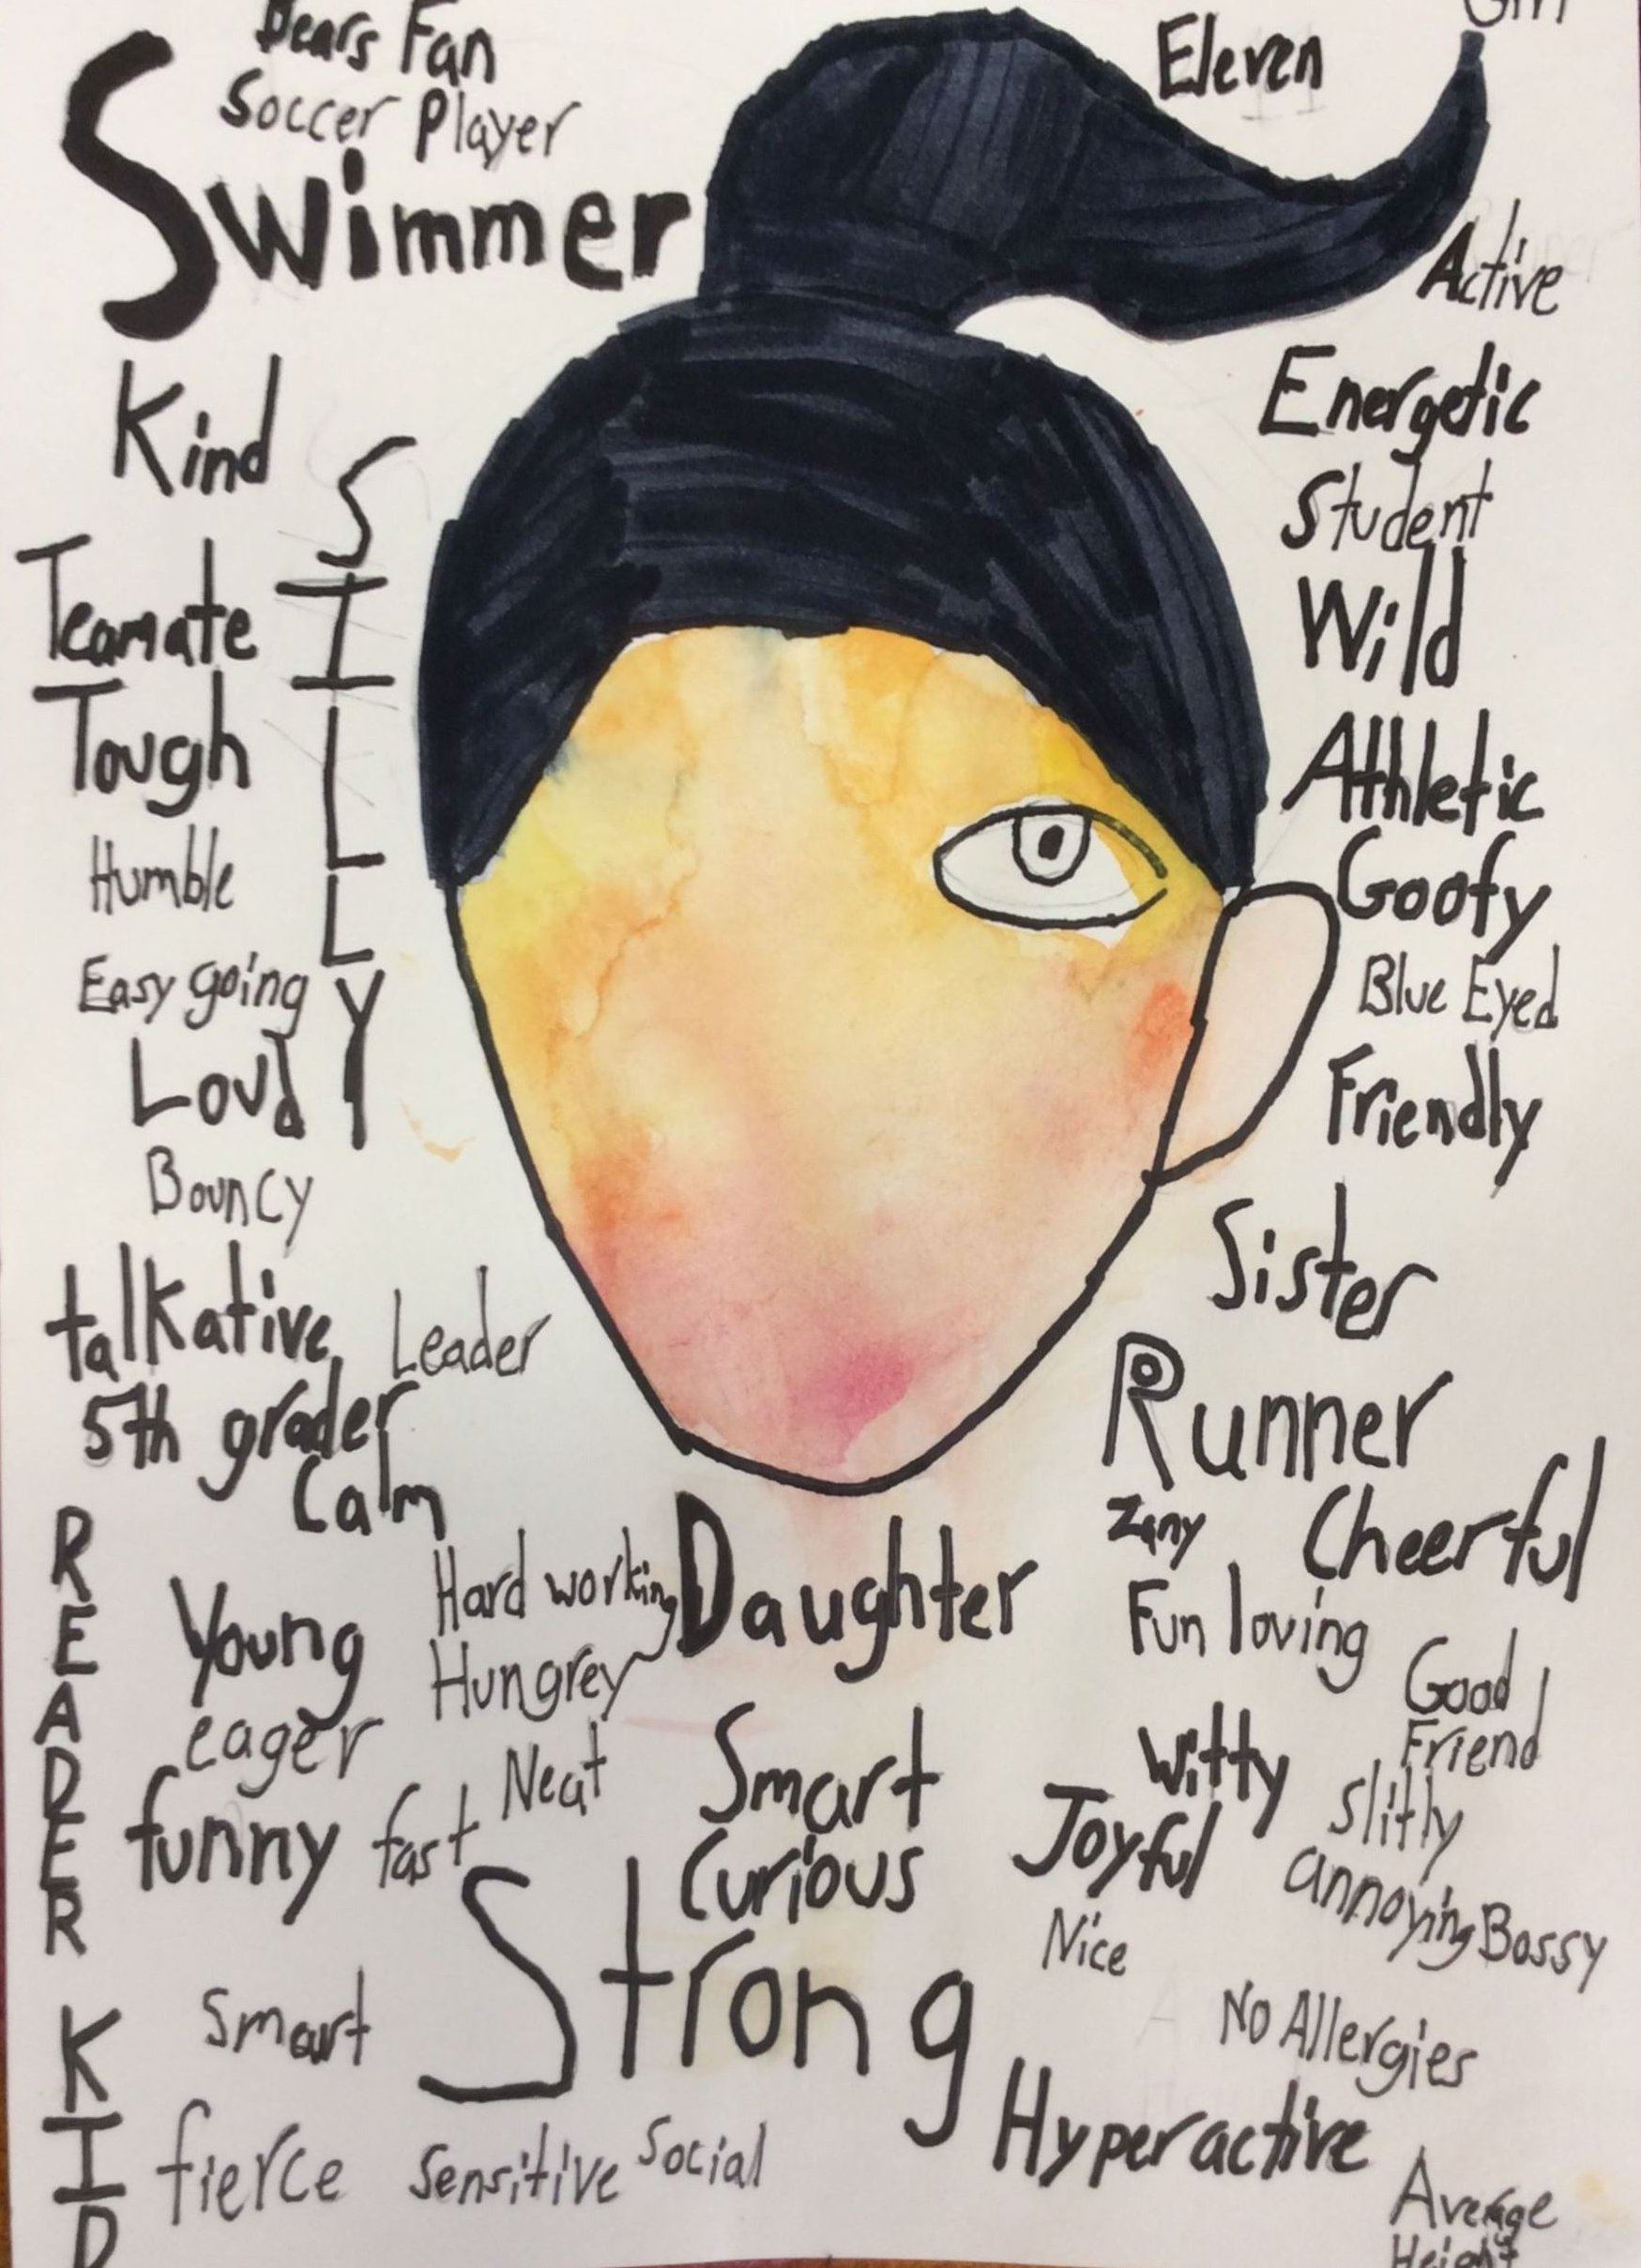 Bears Fan
Soccer Player
Swimmer
Eleven
Girl
Active
Kind
SILLY
Energetic
Student
Teamate
Wild
Tough
Athletic
Humble
Goofy
Easy going
Blue Eyed
Loud
Friendly
Bouncy
Sister
talkative
Leader
Runner
5th grader
Calm
Zany
Cheerful
READER
Hard working
Daughter
Young
Hungrey
Fun loving
Good
Friend
eager
Neat
Smart
Witty
Slitly
annoying
funny
fast
Curious
Joyful
Bossy
Nice
Strong
KID
Smart
No Allergies
fierce
Sensitive
Social
Hyperactive
Average
Height